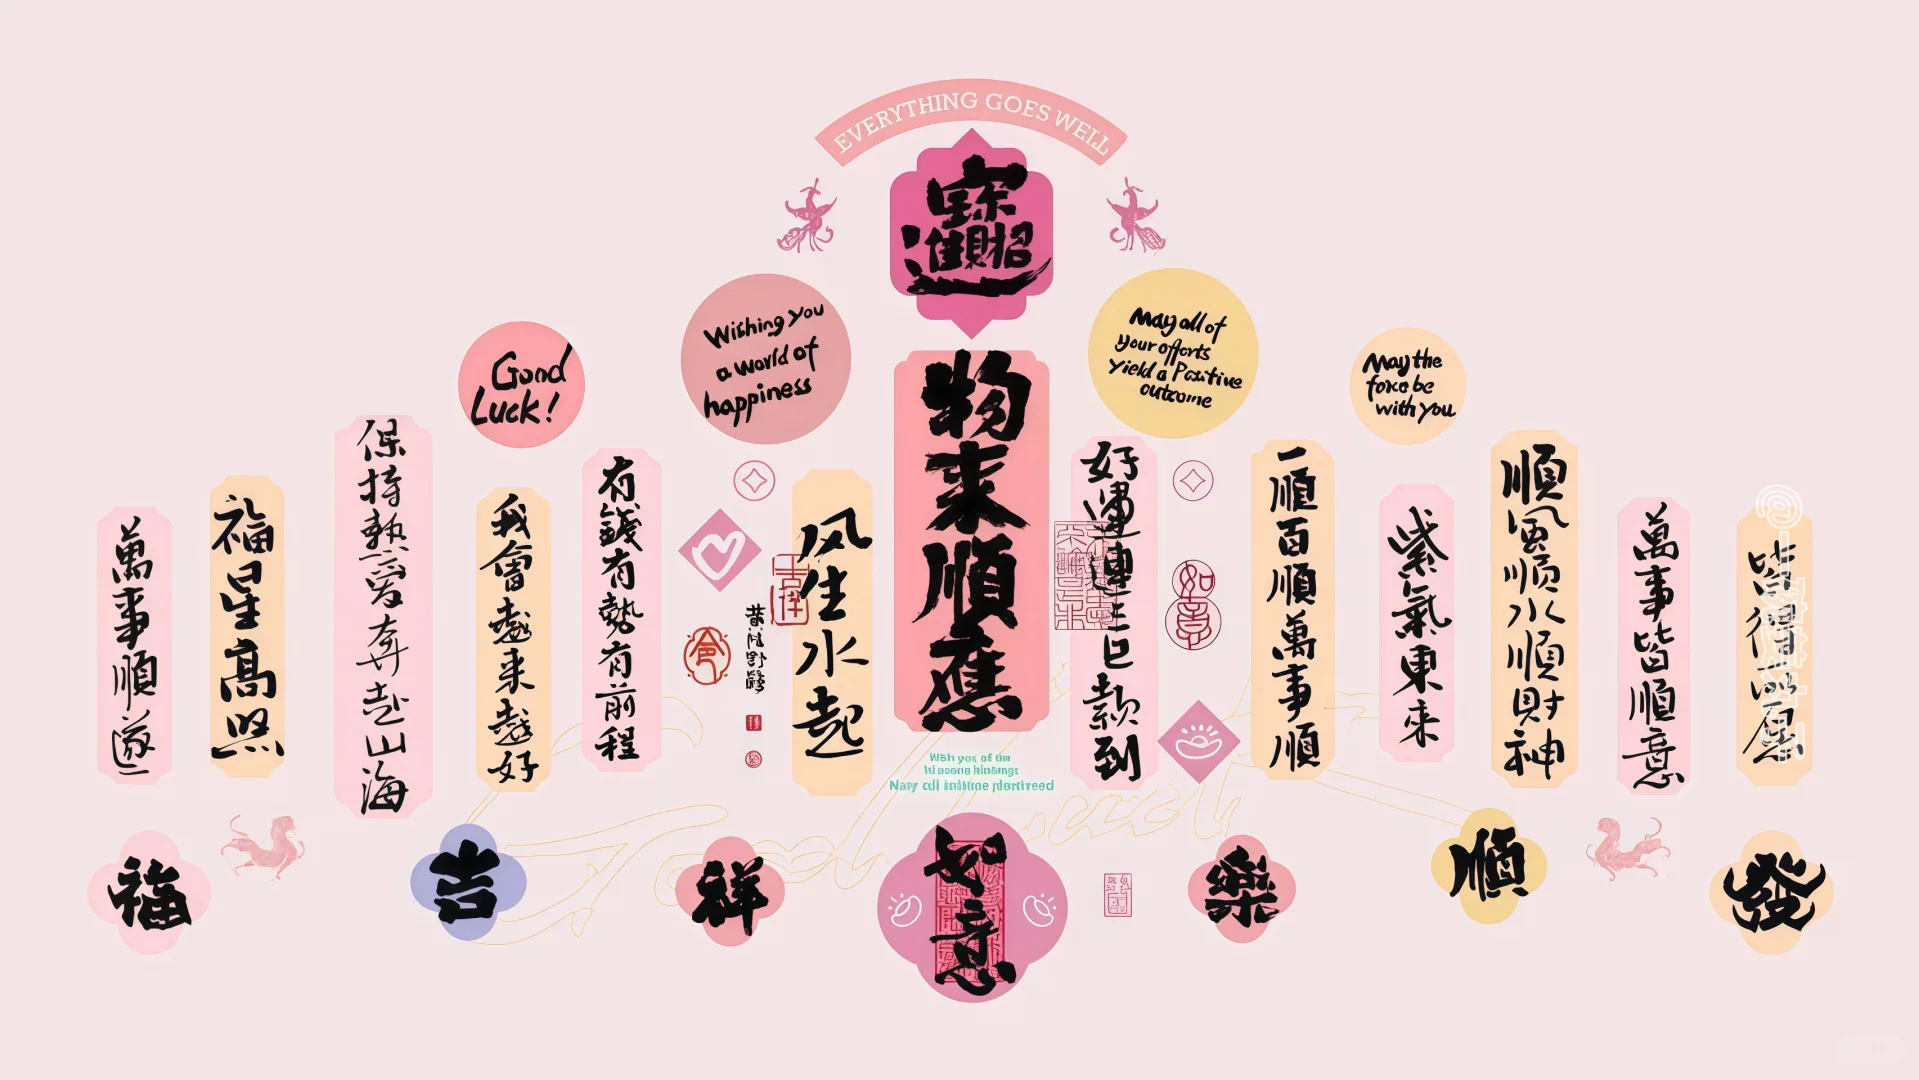 EVERYTHING GOES WELL
招財進寶
Good
Luck!
Wishing you
a world of
happiness
May all of
your offorts
Yield a Positive
outcome
May the
force be
with you
萬事順遂
福星高照
保持熱愛奔赴山海
我會越来越好
有錢有勢有前程
风生水起
物来順應
好運連連巨款到
一順百順萬事順
紫氣東来
順風順水順財神
萬事皆順意
皆得所愿
如意
福
吉
祥
如意
樂
順
發